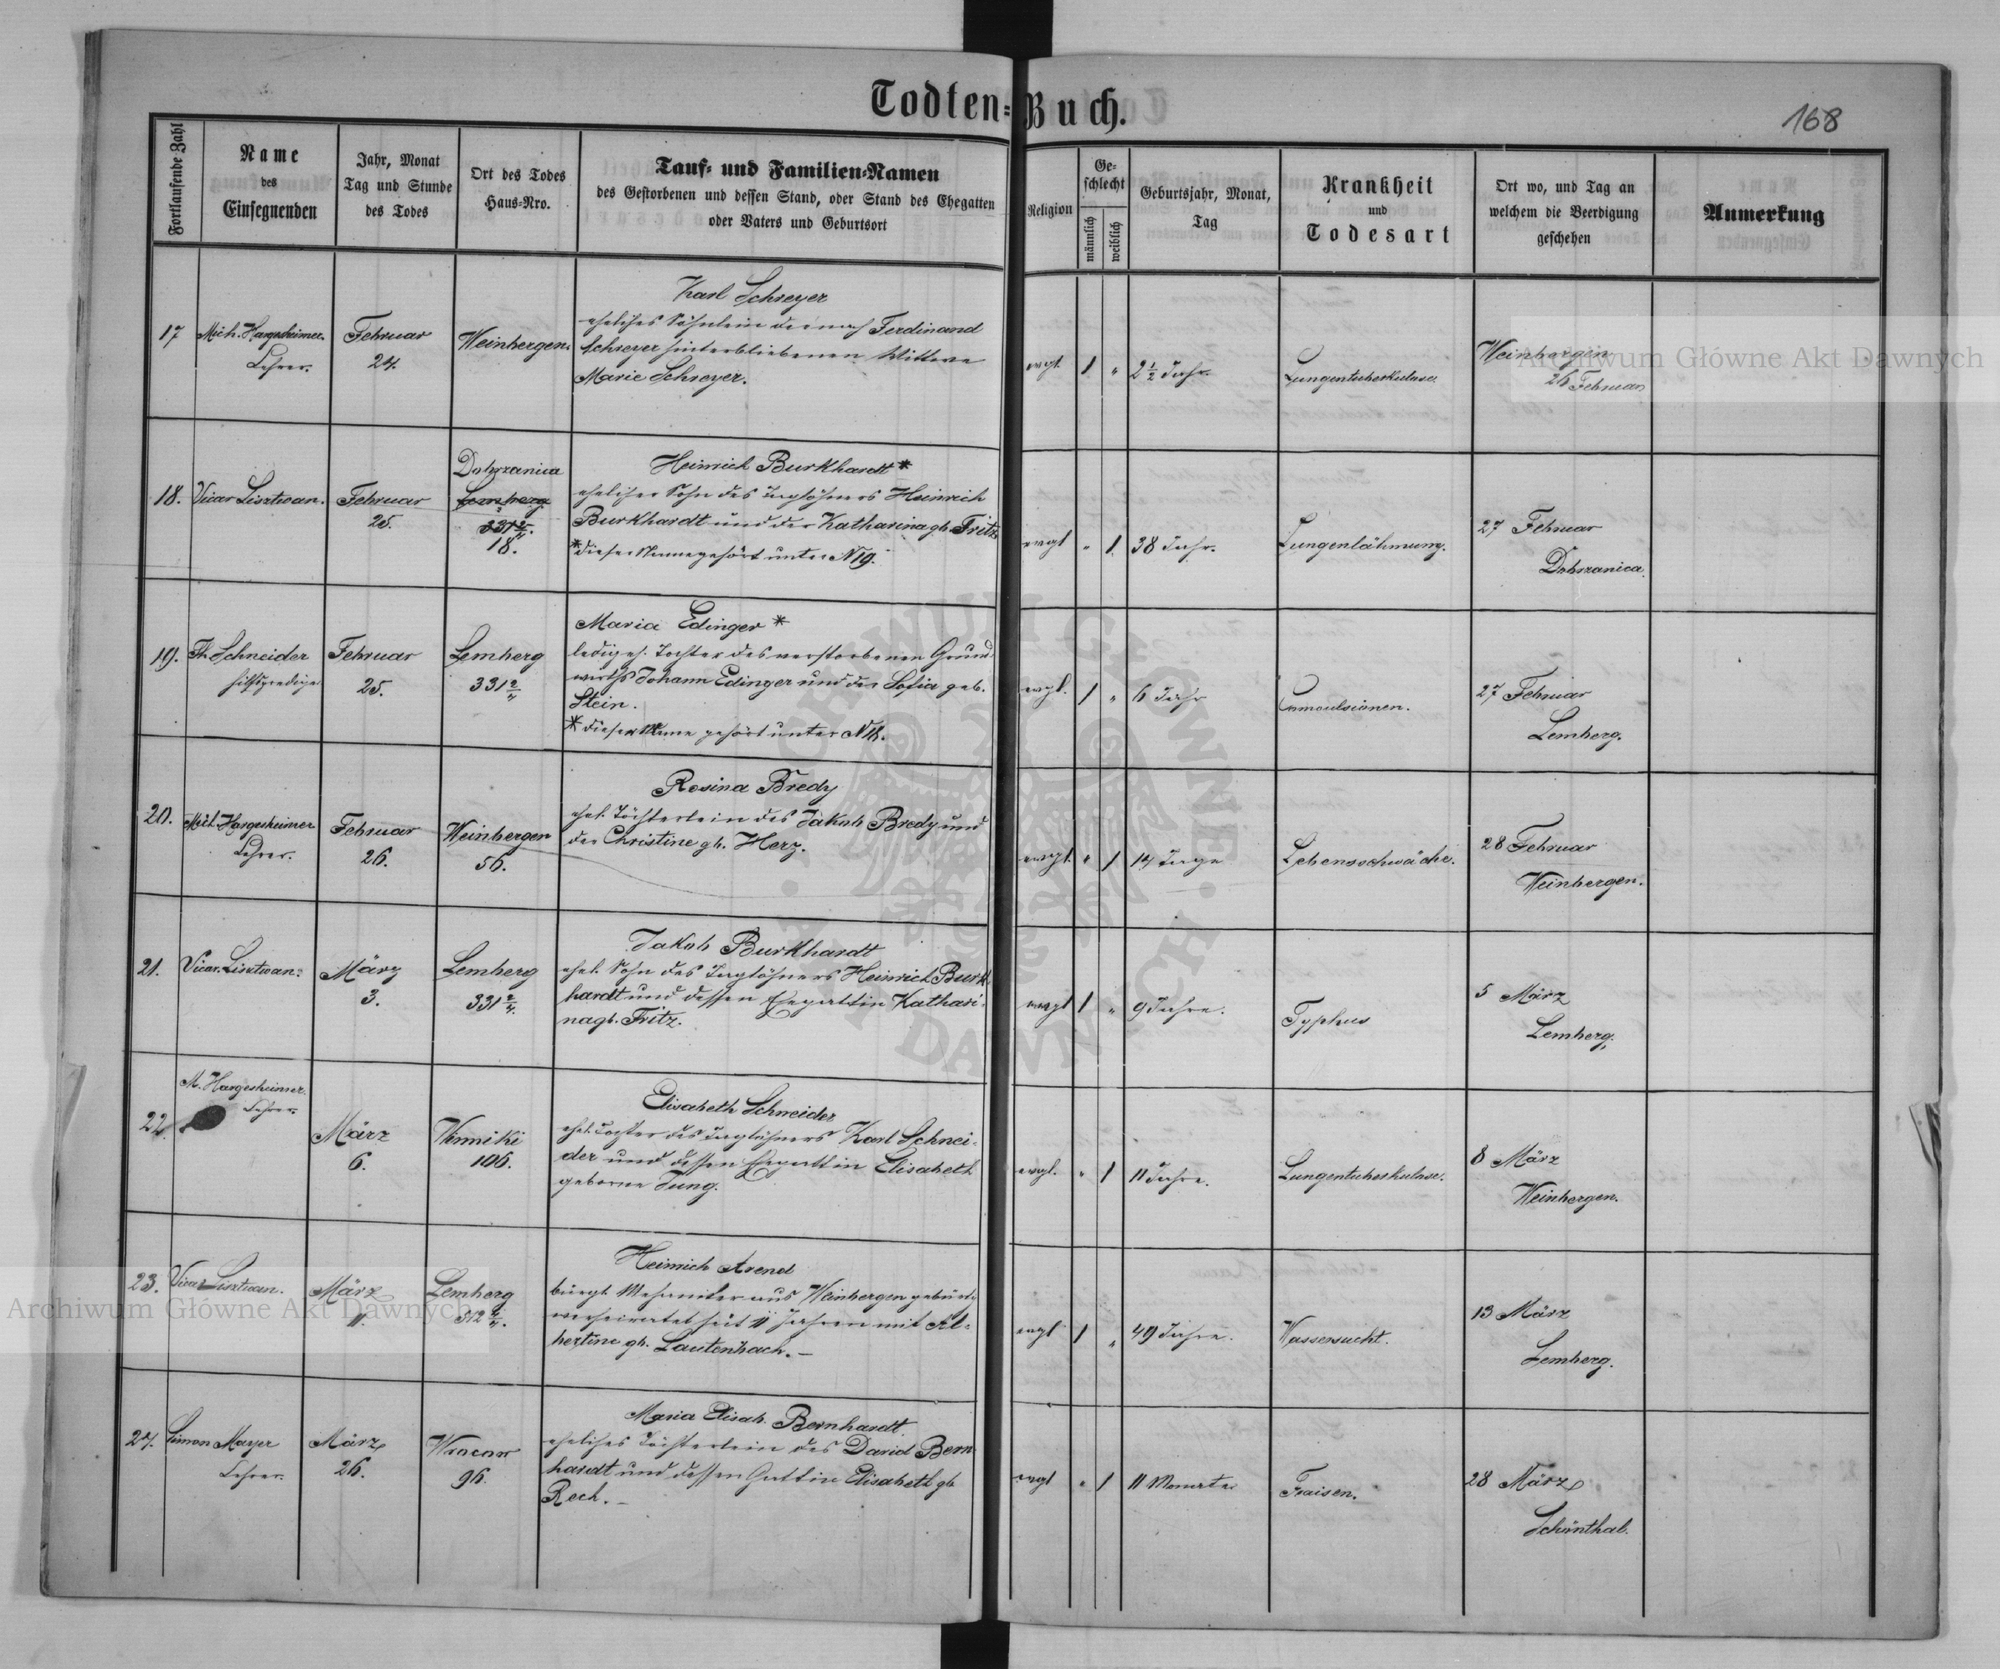 Todten-Buch.
168
Fortlaufende Zahl
Name
des
Einsegnenden
Jahr, Monat
Tag und Stunde
des Todes
Ort des Todes
Haus-Nro.
Tauf- und Familien-Namen
des Gestorbenen und dessen Stand, oder Stand des Ehegatten
oder Vaters und Geburtsort
Religion
Ge-
schlecht
männlich
weiblich
Geburtsjahr, Monat,
Tag
Krankheit
und
Todesart
Ort wo, und Tag an
welchem die Beerdigung
geschehen
Anmerkung
17
Mich. Hargesheimer
Lehrer.
Februar
24.
Weinbergen.
Karl Schreyer
eheliches Söhnlein der nach Ferdinand
Schreyer hinterbliebenen Wittwe
Marie Schreyer.
evgl.
1
"
2 1/2 Jahr.
Lungentuberkulose
Weinbergen
26 Februar
18.
Vicar Lisztwan.
Februar
25.
Dobrzanica
Lemberg
331 2/4.
18.
Heinrich Burkhardt *
ehelicher Sohn des Taglöhners Heinrich
Burkhardt und der Katharina gb. Fritz
* dieser Name gehört unter N 19.
evgl
"
1.
38 Jahr.
Lungenlähmung.
27 Februar
Dobrzanica.
19.
Th. Schneider
Hilfsprediger
Februar
25.
Lemberg
331 2/4
Maria Edinger *
ledige Tochter des verstorbenen Grund-
wirths Johann Edinger und der Sofia geb.
Stein.
* dieser Name gehört unter N 18.
evgl.
1
"
6 Jahr
Convulsionen.
27 Februar
Lemberg.
20.
Mich. Hargesheimer
Lehrer.
Februar
26.
Weinbergen
56.
Rosina Bredy
ehel. Töchterlein des Jakob Bredy und
der Christine gb. Herz.
evgl.
"
1
14 Tage
Lebensschwäche.
28 Februar
Weinbergen.
21.
Vicar. Lisztwan.
März
3.
Lemberg
331 2/4.
Jakob Burkhardt
ehel. Sohn des Taglöhners Heinrich Burk-
hardt und dessen Ehegattin Kathari-
na gb. Fritz.
evgl
1
"
9 Jahre.
Typhus
5 März
Lemberg.
22.
M. Hargesheimer
Lehrer.
März
6.
Winniki
106.
Elisabeth Schneider
ehel. Tochter des Taglöhners Karl Schnei-
der und dessen Ehegattin Elisabeth
geborne Jung.
evgl.
"
1
11 Jahre.
Lungentuberkulose.
8 März
Weinbergen.
23.
Vicar Lisztwan.
März
11.
Lemberg
512 2/4.
Heinrich Arend
bürgl. Mechaniker aus Weinbergen gebürt.
verheiratet seit 11 Jahren mit Al-
bertine gb. Lautenbach. —
evgl
1
"
49 Jahre.
Wassersucht.
13 März
Lemberg.
24.
Simon Mayer
Lehrer.
März
26.
Wrocow
96.
Maria Elisab. Bernhardt.
eheliches Töchterlein des David Bern-
hardt und dessen Gattin Elisabeth gb
Rech. —
evgl
"
1
11 Monate
Fraisen.
28 März
Schönthal.
Archiwum Główne Akt Dawnych
Archiwum Główne Akt Dawnych
ARCHIWUM GŁÓWNE AKT DAWNYCH